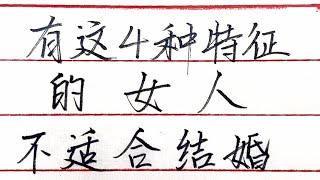 有这4种特征
的女人
不适合结婚